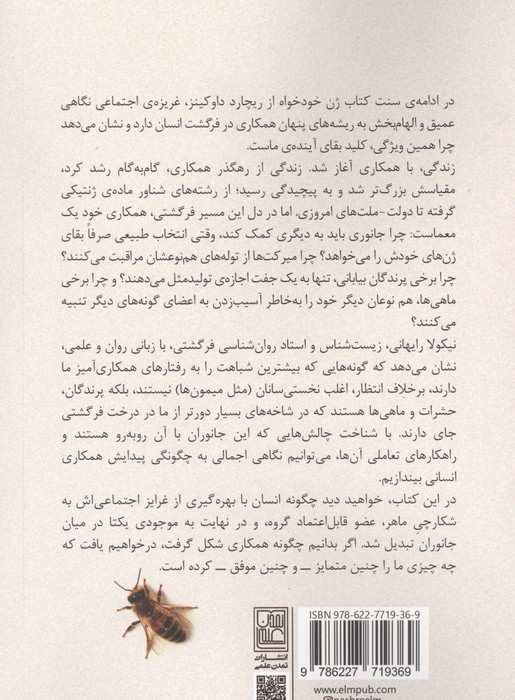 در ادامه‌ی سنت کتاب ژن خودخواه از ریچارد داوکینز، غریزه‌ی اجتماعی نگاهی
عمیق و الهام‌بخش به ریشه‌های پنهان همکاری در فرگشت انسان دارد و نشان می‌دهد
چرا همین ویژگی، کلید بقای آینده‌ی ماست.
زندگی، با همکاری آغاز شد. زندگی از رهگذر همکاری، گام‌به‌گام رشد کرد،
مقیاسش بزرگ‌تر شد و به پیچیدگی رسید؛ از رشته‌های شناور ماده‌ی ژنتیکی
گرفته تا دولت-ملت‌های امروزی. اما در دل این مسیر فرگشتی، همکاری خود یک
معماست: چرا جانوری باید به دیگری کمک کند، وقتی انتخاب طبیعی صرفاً بقای
ژن‌های خودش را می‌خواهد؟ چرا میرکت‌ها از توله‌های هم‌نوعشان مراقبت می‌کنند؟
چرا برخی پرندگان بیابانی، تنها به یک جفت اجازه‌ی تولیدمثل می‌دهند؟ و چرا برخی
ماهی‌ها، هم نوعان دیگر خود را به‌خاطر آسیب‌زدن به اعضای گونه‌های دیگر تنبیه
می‌کنند؟
نیکولا رایهانی، زیست‌شناس و استاد روان‌شناسی فرگشتی، با زبانی روان و علمی،
نشان می‌دهد که گونه‌هایی که بیشترین شباهت را به رفتارهای همکاری‌آمیز ما
دارند، برخلاف انتظار، اغلب نخستی‌سانان (مثل میمون‌ها) نیستند، بلکه پرندگان،
حشرات و ماهی‌ها هستند که در شاخه‌های بسیار دورتر از ما در درخت فرگشتی
جای دارند. با شناخت چالش‌هایی که این جانوران با آن روبه‌رو هستند و
راهکارهای تعاملی آن‌ها، می‌توانیم نگاهی اجمالی به چگونگی پیدایش همکاری
انسانی بیندازیم.
در این کتاب، خواهید دید چگونه انسان با بهره‌گیری از غرایز اجتماعی‌اش به
شکارچیِ ماهر، عضو قابل‌اعتماد گروه، و در نهایت به موجودی یکتا در میان
جانوران تبدیل شد. اگر بدانیم چگونه همکاری شکل گرفت، درخواهیم یافت که
چه چیزی ما را چنین متمایز ــ و چنین موفق ــ کرده است.
ISBN 978-622-7719-36-9
9 786227 719369
تمدن علمی
انتشارات
تمدن علمی
www.elmpub.com